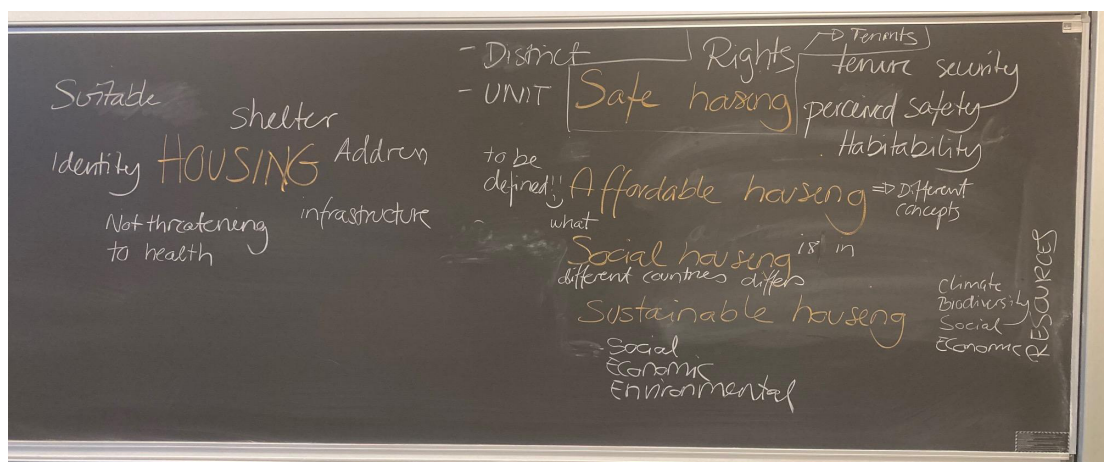 Suitable
Shelter
Identity HOUSING Address
Not threatening
to health
infrastructure
- District
- UNIT
Rights
→ Tenants
tenure security
Safe housing
perceived safety
Habitability
to be
defined!!
Affordable housing => Different
concepts
what
Social housing is in
different countries differs
Sustainable housing
Social
Economic
Environmental
Climate
Biodiversity
Social
Economic
RESOURCES